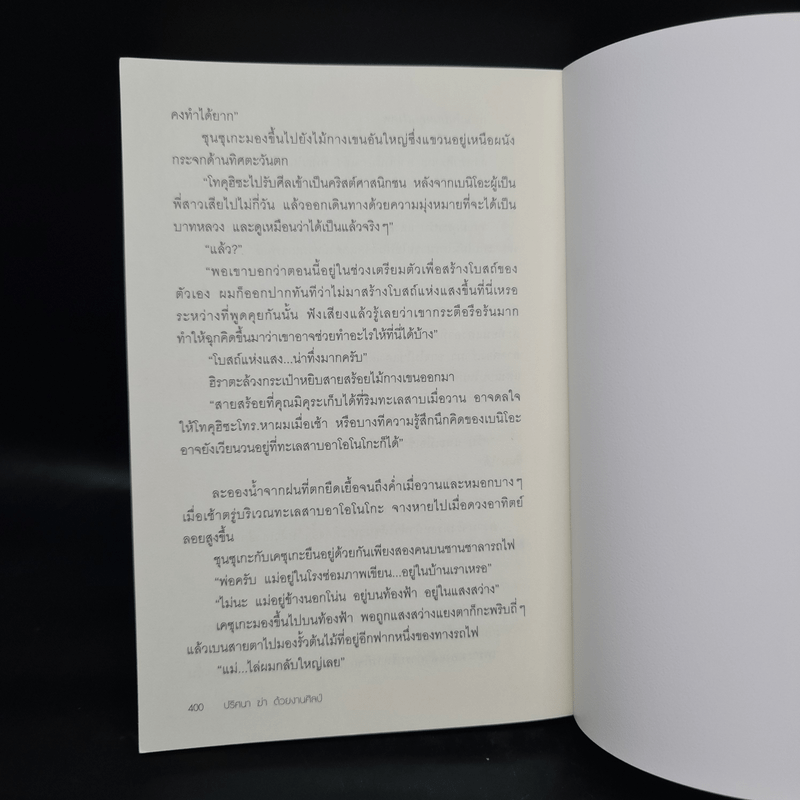 คงทำได้ยาก"
ชุนซุเกะมองขึ้นไปยังไม้กางเขนอันใหญ่ซึ่งแขวนอยู่เหนือผนัง
กระจกด้านทิศตะวันตก
"โทคุฮิซะไปรับศีลเข้าเป็นคริสต์ศาสนิกชน หลังจากเบนิโอะผู้เป็น
พี่สาวเสียไปไม่กี่วัน แล้วออกเดินทางด้วยความมุ่งหมายที่จะได้เป็น
บาทหลวง และดูเหมือนว่าได้เป็นแล้วจริงๆ"
"แล้ว?"
"พอเขาบอกว่าตอนนี้อยู่ในช่วงเตรียมตัวเพื่อสร้างโบสถ์ของ
ตัวเอง ผมก็ออกปากทันทีว่าไม่มาสร้างโบสถ์แห่งแสงขึ้นที่นี่เหรอ
ระหว่างที่พูดคุยกันนั้น ฟังเสียงแล้วรู้เลยว่าเขากระตือรือร้นมาก
ทำให้ฉุกคิดขึ้นมาว่าเขาอาจช่วยทำอะไรให้ที่นี่ได้บ้าง"
"โบสถ์แห่งแสง...น่าทึ่งมากครับ"
ฮิราตะล้วงกระเป๋าหยิบสายสร้อยไม้กางเขนออกมา
"สายสร้อยที่คุณมิคุระเก็บได้ที่ริมทะเลสาบเมื่อวาน อาจดลใจ
ให้โทคุฮิซะโทร.หาผมเมื่อเช้า หรือบางทีความรู้สึกนึกคิดของเบนิโอะ
อาจยังเวียนวนอยู่ที่ทะเลสาบอาโอโนโกะก็ได้"
ละอองน้ำจากฝนที่ตกยืดเยื้อจนถึงค่ำเมื่อวานและหมอกบางๆ
เมื่อเช้าตรู่บริเวณทะเลสาบอาโอโนโกะ จางหายไปเมื่อดวงอาทิตย์
ลอยสูงขึ้น
ชุนซุเกะกับเคซุเกะยืนอยู่ด้วยกันเพียงสองคนบนชานชาลารถไฟ
"พ่อครับ แม่อยู่ในโรงซ่อมภาพเขียน...อยู่ในบ้านเราเหรอ"
"ไม่นะ แม่อยู่ข้างนอกโน่น อยู่บนท้องฟ้า อยู่ในแสงสว่าง"
เคซุเกะมองขึ้นไปบนท้องฟ้า พอถูกแสงสว่างแยงตาก็กะพริบถี่ๆ
แล้วเบนสายตาไปมองรั้วต้นไม้ที่อยู่อีกฟากหนึ่งของทางรถไฟ
"แม่...ไล่ผมกลับใหญ่เลย"
400 ปริศนา ฆ่า ด้วยงานศิลป์